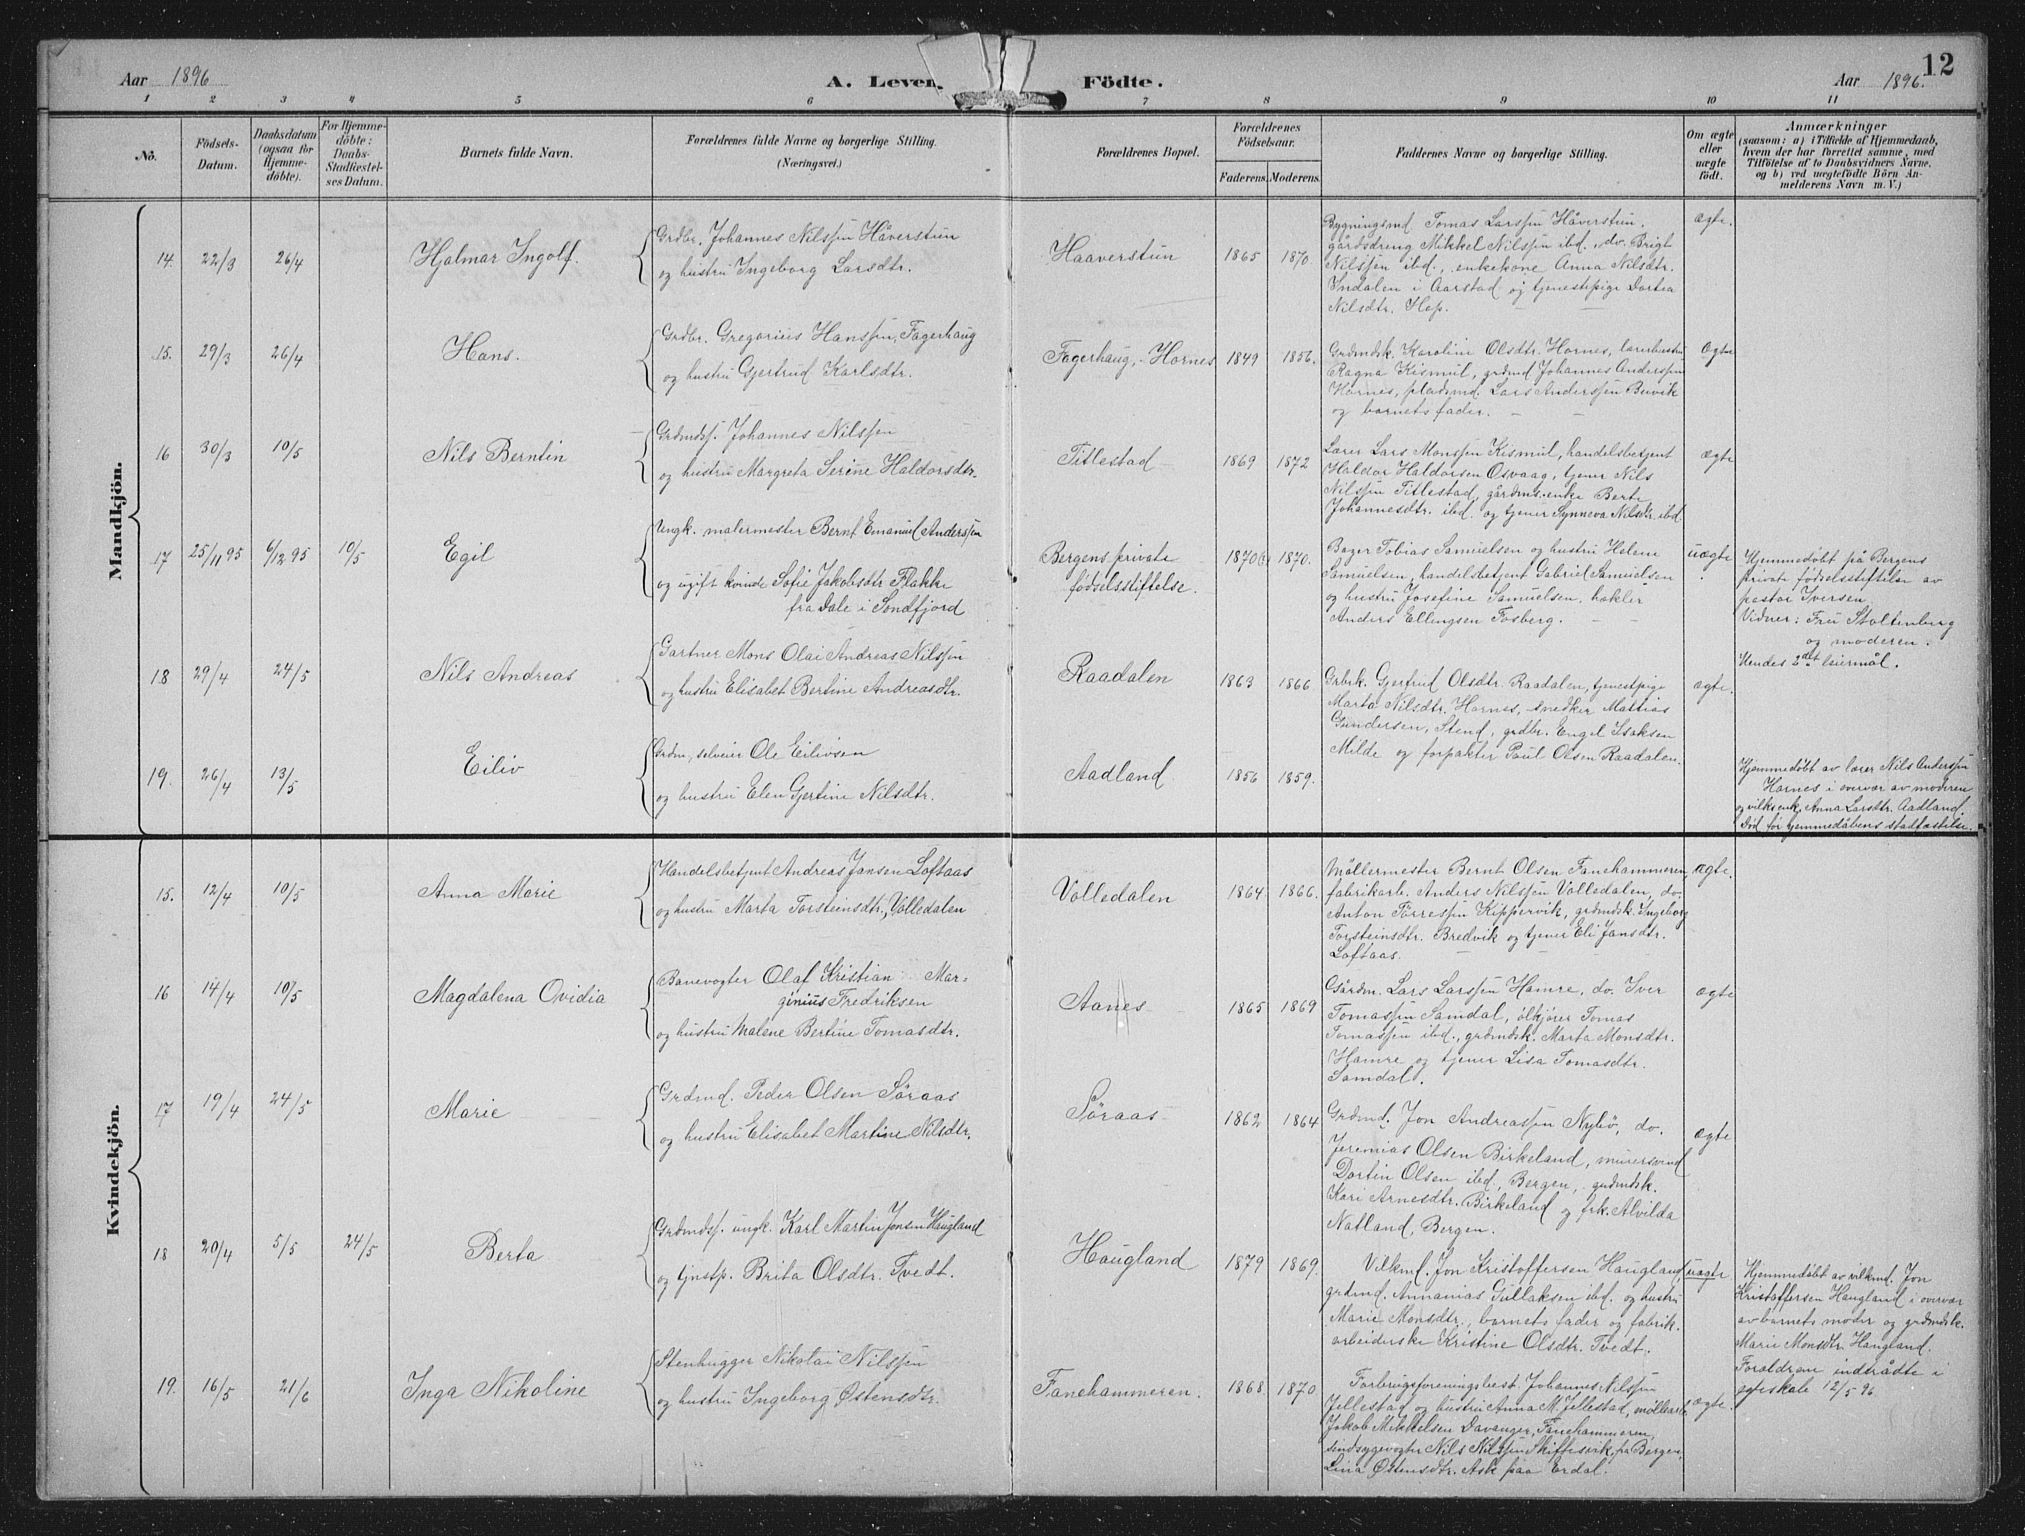 Aar 1896
A. Leven Födte.
Aar 1896.
12
1 2 3 4 5 6 7 8 9 10 11
No.
Födsels-
Datum.
Daabsdatum
(ogsaa for
Hjemme-
döbte).
For Hjemme-
döbte:
Daabs-
Stadfæstel-
ses Datum.
Barnets fulde Navn.
Forældrenes fulde Navne og borgerlige Stilling.
(Næringsvei.)
Forældrenes Bopæl.
Forældrenes
Födselsaar.
Faderens. Moderens.
Faddernes Navne og borgerlige Stilling.
Om ægte
eller
uægte
födt.
Anmærkninger
(saasom: a) i Tilfælde af Hjemmedaab,
hvem der har forrettet samme, med
Tilföielse af to Daabsvidners Navne,
og b) ved uægtefödte Börn An-
melderens Navn m. V.)
Mandkjön.
14. 22/3 26/4
Hjalmar Ingolf.
Grdbr. Johannes Nilssen Håverstun
og hustru Ingeborg Larsdtr.
Haaverstun
1865 1870.
Bygningsmd Tomas Larssen Håverstun,
gårdsdreng Mikkel Nilssen ibd., do. Brigt
Nilssen ibd., enkekone Anna Nilsdtr.
Indalen i Aarstad og tjenestepige Dortea
Nilsdtr. Hop.
ægte.
15. 29/3 26/4
Hans.
Grdbr. Gregorius Hanssen, Fagerhaug
og hustru Gjertrud Karlsdtr.
Fagerhaug, Hornes
1849 1856.
Grdmdsk. Karoline Olsdtr. Hornes, lærerhustru
Ragna Kismul, grdmd Johannes Anderssen
Hornes, pladsmd. Lars Anderssen Buvik
og barnets fader.
ægte
16 30/3 10/5
Nils Berntin
Grdmdss. Johannes Nilssen
og hustru Margreta Serine Haldorsdtr.
Titlestad
1869 1872
Lærer Lars Monssen Kismul, handelsbetjent
Haldor Haldorsen Osvaag, tjener Nils
Nilssen Titlestad, gårdms. enke Berte
Johannesdtr. ibd. og tjener Synneva Nilsdtr. ibd
ægte
17 25/11 95 6/12 95 10/5
Egil
Ungk. malermester Bernt Emanuel Anderssen
og ugift kvinde Sofie Jakobsdtr Flekke
fra Dale i Sondfjord
Bergens private
fødselsstiftelse.
1870(?) 1870.
Bager Tobias Samuelsen og hustru Helene
Samuelsen, handelsbetjent Gabriel Samuelsen
og hustru Josefine Samuelsen, hakler
Anders Ellingsen Fosberg.
uægte
Hjemmedøbt på Bergens
private fødselsstiftelse av
pastor Iversen.
Vidner: Fru Stoltenberg
og moderen.
Hendes 2det leiermål.
18 29/4 24/5
Nils Andreas
Gartner Mons Olai Andreas Nilssen
og hustru Elisabet Bertine Andreasdtr.
Raadalen
1863 1866
Grbrk. Gjertrud Olsdtr. Raadalen, tjenestpige
Marta Nilsdtr. Hornes, snedker Mattias
Gundersen, Stend, grdbr. Engel Isaksen
Milde og forpakter Paul Olsen Raadalen.
ægte.
19. 26/4 13/5
Eiliv
Grdm, selveier Ole Eilivsen
og hustru Elen Gjertine Nilsdtr.
Aadland
1856 1859.
Hjemmedøbt av lærer Nils Anderssen
Hornes i overvær av moderen
og vilks.enk. Anna Larsdtr. Aadland.
Død før hjemmedåbens stadfæstelse.
Kvindekjön.
15. 12/4 10/5
Anna Marie
Handelsbetjent Andreas Jansen Loftaas
og hustru Marta Torsteinsdtr, Volledalen
Volledalen
1864 1866.
Møllermester Bernt Olsen Fanehammeren,
fabrikarb. Anders Nilssen Volledalen, do
Anton Tørressen Kippervik, grdmdsk. Ingeborg
Torsteinsdtr. Bredvik og tjener Eli Jansdtr.
Loftaas.
ægte.
16 14/4 10/5
Magdalena Ovidia
Banevogter Olaf Kristian Mar-
ginius Fredriksen
og hustru Malene Bertine Tomasdtr.
Aanes
1865 1869
Gårdm. Lars Larssen Hamre, do. Iver
Tomassen Samdal, ølkjører Tomas
Tomassen ibd., grdmdsk. Marta Monsdtr.
Hamre og tjener Lisa Tomasdtr.
Samdal.
ægte
17 19/4 24/5
Marie
Grdmd. Peder Olsen Søraas
og hustru Elisabet Martine Nilsdtr.
Søraas
1862 1864
Grdmd. Jon Andreassen Nybø, do.
Jeremias Olsen Birkeland, murersvend
Dortin Olsen ibd, Bergen, grdmdsk.
Kari Arnesdtr. Birkeland og frk. Alvilda
Natland, Bergen.
ægte
18 20/4 5/5 24/5
Berta
Grdmdss. ungk. Karl Martin Jonsen Haugland
og tjnstp. Brita Olsdtr. Tvedt.
Haugland
1879 1869.
Vilkmd. Jon Kristoffersen Haugland,
grdmd. Annanias Gullaksen ibd. og hustru
Marie Monsdtr., barnets fader og fabrik.
arbeiderske Kristine Olsdtr. Tvedt.
uægte
Hjemmedøbt av vilkmd. Jon
Kristoffersen Haugland i overvær
av barnets moder og grdmdsk.
Marie Monsdtr. Haugland.
Forældrene indtrådte i
egteskab 12/5 96
19. 16/5 21/6
Inga Nikoline
Stenhugger Nikolai Nilssen
og hustru Ingeborg Østensdtr.
Fanehammeren.
1868 1870
Forbrugsforeningsbest. Johannes Nilssen
Jellestad og hustru Anna M. Jellestad, møllearb.
Jakob Mikkelsen Davanger, Fanehammeren,
sindsygevogter Nils Nilssen Skiftesvik, på Bergen,
Lina Østensdtr. Ask paa Erdal.
ægte.